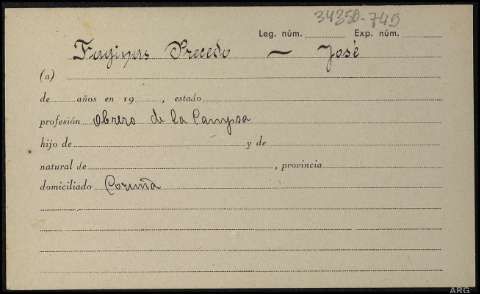 34350-745
Leg. núm. Exp. núm.
Faginas Precedo — José
(a)
de años en 19 , estado
profesión obrero de la Campsa
hijo de y de
natural de , provincia
domiciliado Coruña
ARG